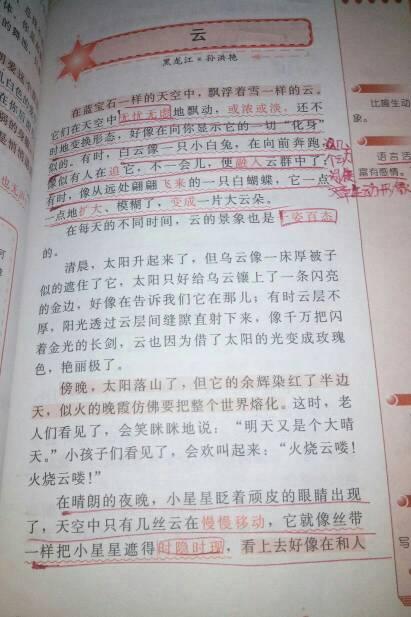 云
黑龙江·孙洪艳
在蓝宝石一样的天空中，飘浮着雪一样的云。
它们在天空中无忧无虑地飘动，或浓或淡，还不
时地变换形态，好像在向你显示它的一切“化身”
似的。有时，白云像一只小白兔，在向前奔跑，
像似有人在追它，不一会儿，便融入云群中了；
有时，像从远处翩翩飞来的一只白蝴蝶，它一点
一点地扩大、模糊了，变成一片大云朵。
在每天的不同时间，云的景象也是千姿百态
的。
清晨，太阳升起来了，但乌云像一床厚被子
似的遮住了它，太阳只好给乌云镶上了一条闪亮
的金边，好像在告诉我们它在那儿；有时云层不
厚，阳光透过云层间缝隙直射下来，像千万把闪
着金光的长剑，云也因为借了太阳的光变成玫瑰
色，艳丽极了。
傍晚，太阳落山了，但它的余辉染红了半边
天，似火的晚霞仿佛要把整个世界熔化。这时，老
人们看见了，会笑眯眯地说：“明天又是个大晴
天。”小孩子们看见了，会欢叫起来：“火烧云喽！
火烧云喽！”
在晴朗的夜晚，小星星眨着顽皮的眼睛出现
了，天空中只有几丝云在慢慢移动，它就像丝带
一样把小星星遮得时隐时现，看上去好像在和人
比喻生动
象。
语言活
富有感情。
写